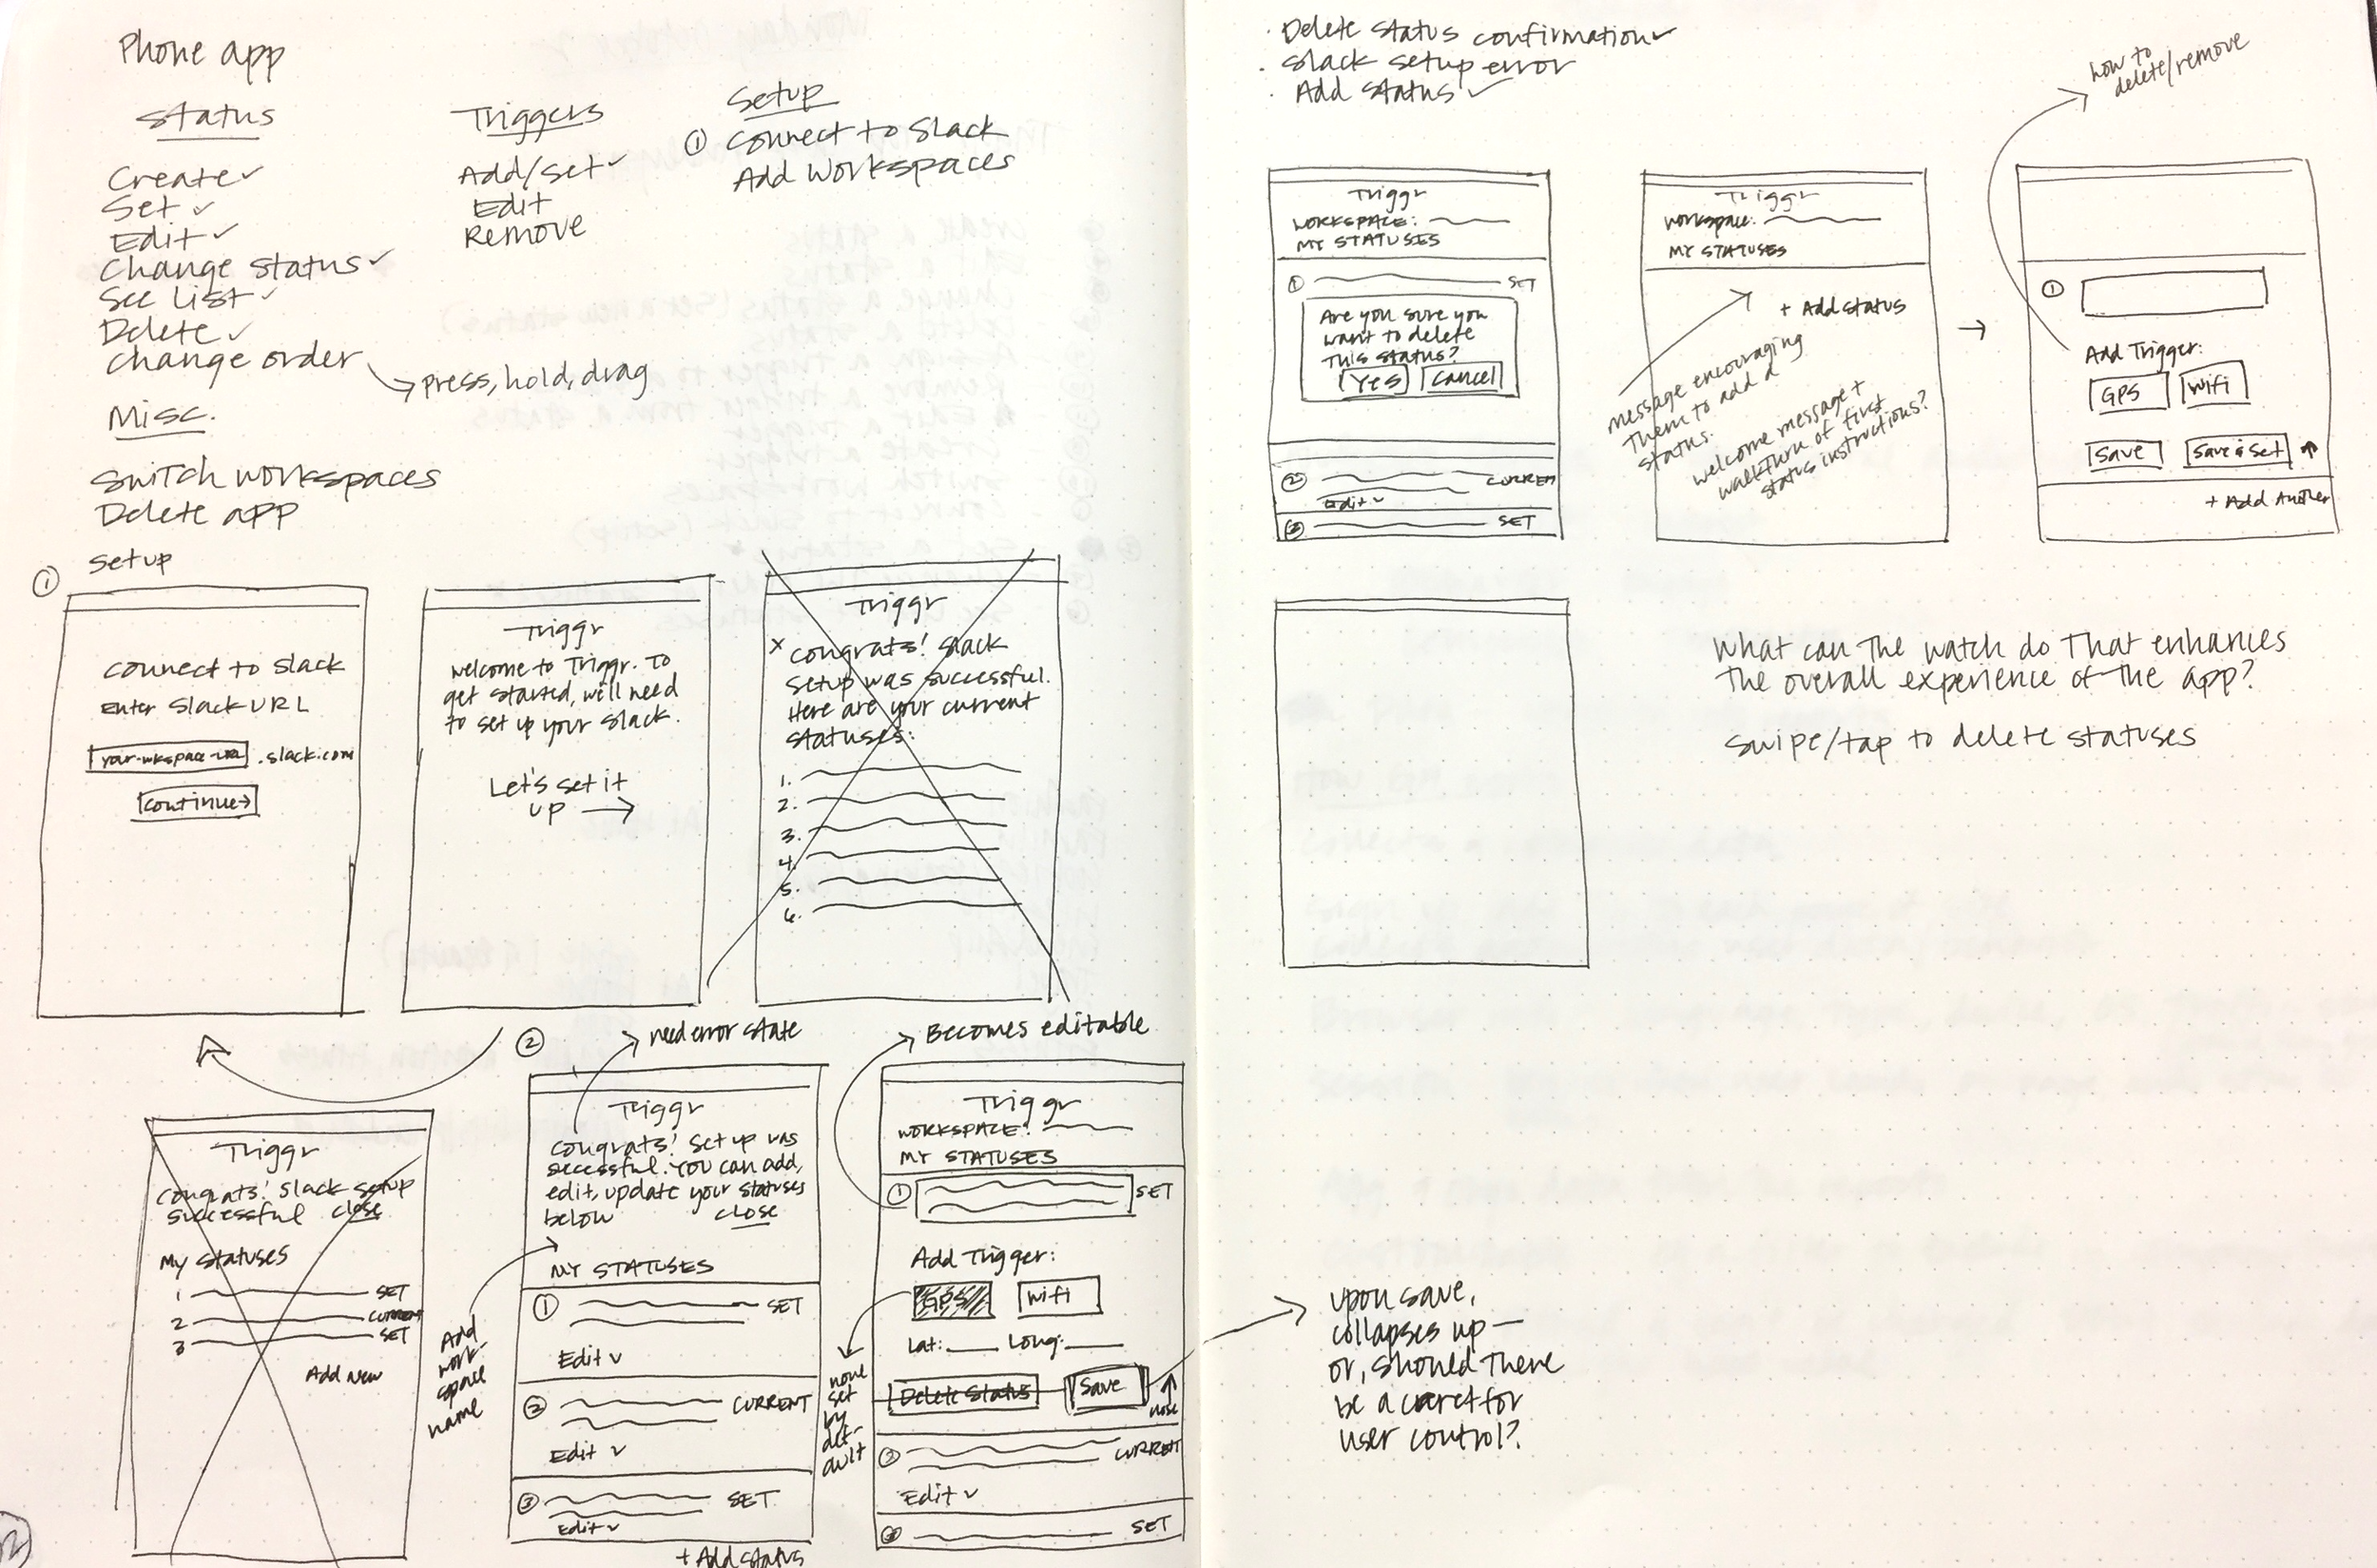 Phone app
Status
Create ✓
Set ✓
Edit ✓
Change status ✓
See List ✓
Delete ✓
change order
→ press, hold, drag
Misc.
Switch workspaces
Delete app
Triggers
Add/Set ✓
Edit
Remove
Setup
① Connect to Slack
Add Workspaces
① Setup
Connect to Slack
Enter Slack URL
your-wkspace-url .slack.com
Continue →
Triggr
Welcome to Triggr. To
get started, we'll need
to set up your Slack.
Let's set it
up →
Triggr
x Congrats! Slack
setup was successful.
Here are your current
statuses:
1.
2.
3.
4.
5.
6.
Triggr
Congrats! Slack setup
successful close
My Statuses
1 SET
2 CURRENT
3 SET
Add New
②
need error state
Triggr
Congrats! Set up was
successful. You can add,
edit, update your statuses
below close
MY STATUSES
① SET
Edit ˅
② CURRENT
Edit ˅
③ SET
Edit ˅
+ Add status
Add
work-
space
name
Becomes editable
Triggr
WORKSPACE:
MY STATUSES
① SET
Add Trigger:
GPS Wifi
Lat: Long:
Delete Status Save
none
set
by
def-
ault
② CURRENT
Edit ˅
③ SET
upon save,
collapses up —
or, should there
be a caret for
user control?
· Delete status confirmation ✓
· Slack setup error
· Add status ✓
Triggr
WORKSPACE:
MY STATUSES
① SET
Are you sure you
want to delete
this status?
Yes Cancel
② CURREN
Edit ˅
③ SET
Triggr
Workspace:
MY STATUSES
+ Add status
message encouraging
them to add a
status.
welcome message +
walkthru of first
status instructions?
how to
delete/remove
①
Add Trigger:
GPS Wifi
Save Save & Set
+ Add Another
What can the watch do that enhances
the overall experience of the app?
Swipe/tap to delete statuses